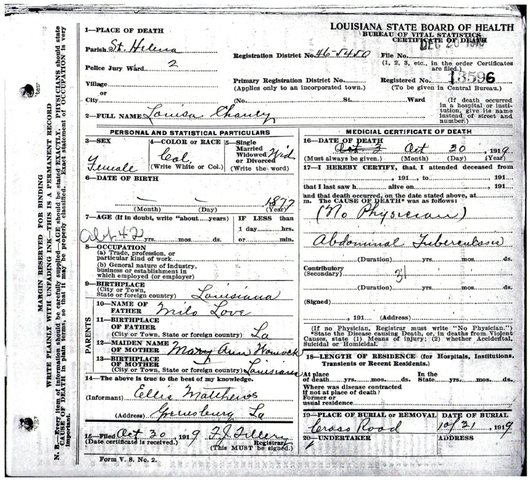 LOUISIANA STATE BOARD OF HEALTH
BUREAU OF VITAL STATISTICS
CERTIFICATE OF DEATH
1—PLACE OF DEATH
Parish St. Helena
Registration District No. 46-5450
File No.
DEC 20 1919
(1, 2, 3, etc., in the order certificates are filed.)
Police Jury Ward 2
Village
Primary Registration District No.
(Applies only to an incorporated town.)
Registered No. 13596
(To be given in Central Bureau.)
or
City
No. St. Ward
(If death occurred in a hospital or institution, give its name instead of street and number.)
2—FULL NAME Louisa Chaney
PERSONAL AND STATISTICAL PARTICULARS
3—SEX
Female
4—COLOR or RACE
Col.
(Write White or Col.)
5—Single
Married
Widowed
or Divorced
Wid
(Write the word)
6—DATE OF BIRTH
1877
(Month) (Day) (Year)
7—AGE (If in doubt, write "about" years)
Abt 42 yrs. mos. ds.
IF LESS than
1 day hrs.
or min.
8—OCCUPATION
(a) Trade, profession, or
particular kind of work
(b) General nature of industry,
business or establishment in
which employed (or employer)
9—BIRTHPLACE
(City or Town,
State or foreign country) Louisiana
PARENTS
10—NAME OF
FATHER Milo Love
11—BIRTHPLACE
OF FATHER
(City or Town, State or foreign country) La
12—MAIDEN NAME
OF MOTHER Mary Ann
13—BIRTHPLACE
OF MOTHER
(City or Town, State or foreign country) Louisiana
14—The above is true to the best of my knowledge.
(Informant) Ellis Matthews
(Address) Greensburg La
15—Filed Oct 30 1919 T.J. Tillery
(Date certificate is received.) Registrar
Form V. S. No. 2.
MEDICAL CERTIFICATE OF DEATH
16—DATE OF DEATH
Oct 20, 1919
(Must always be given.) (Month) (Day) (Year)
17—I HEREBY CERTIFY, that I attended deceased from
191 , to 191
that I last saw h alive on 191
and that death occurred, on the date stated above, at
m. The CAUSE OF DEATH* was as follows:
(No Physician)
Abdominal Tuberculosis
(Duration) yrs. mos. ds.
Contributory
(Secondary) 31
(Duration) yrs. mos. ds.
(Signed)
191 (Address)
If no Physician, Registrar must write "No Physician."
*State the Disease causing Death, or, in deaths from Violent Causes, state (1) Means of injury; (2) whether Accidental, Suicidal or Homicidal.
18—LENGTH OF RESIDENCE (for Hospitals, Institutions, Transients or Recent Residents.)
At place of death yrs. mos. ds. State yrs. mos. ds.
Where was disease contracted
if not at place of death?
Former or
usual residence
19—PLACE OF BURIAL OR REMOVAL DATE OF BURIAL
Cross Road 10/21 1919
20—UNDERTAKER ADDRESS
MARGIN RESERVED FOR BINDING
WRITE PLAINLY WITH UNFADING INK—THIS IS A PERMANENT RECORD
N. B.—Every item of information should be carefully supplied—AGE should be stated EXACTLY. PHYSICIANS should state CAUSE OF DEATH in plain terms, so that it may be properly classified. Exact statement of OCCUPATION is very important.